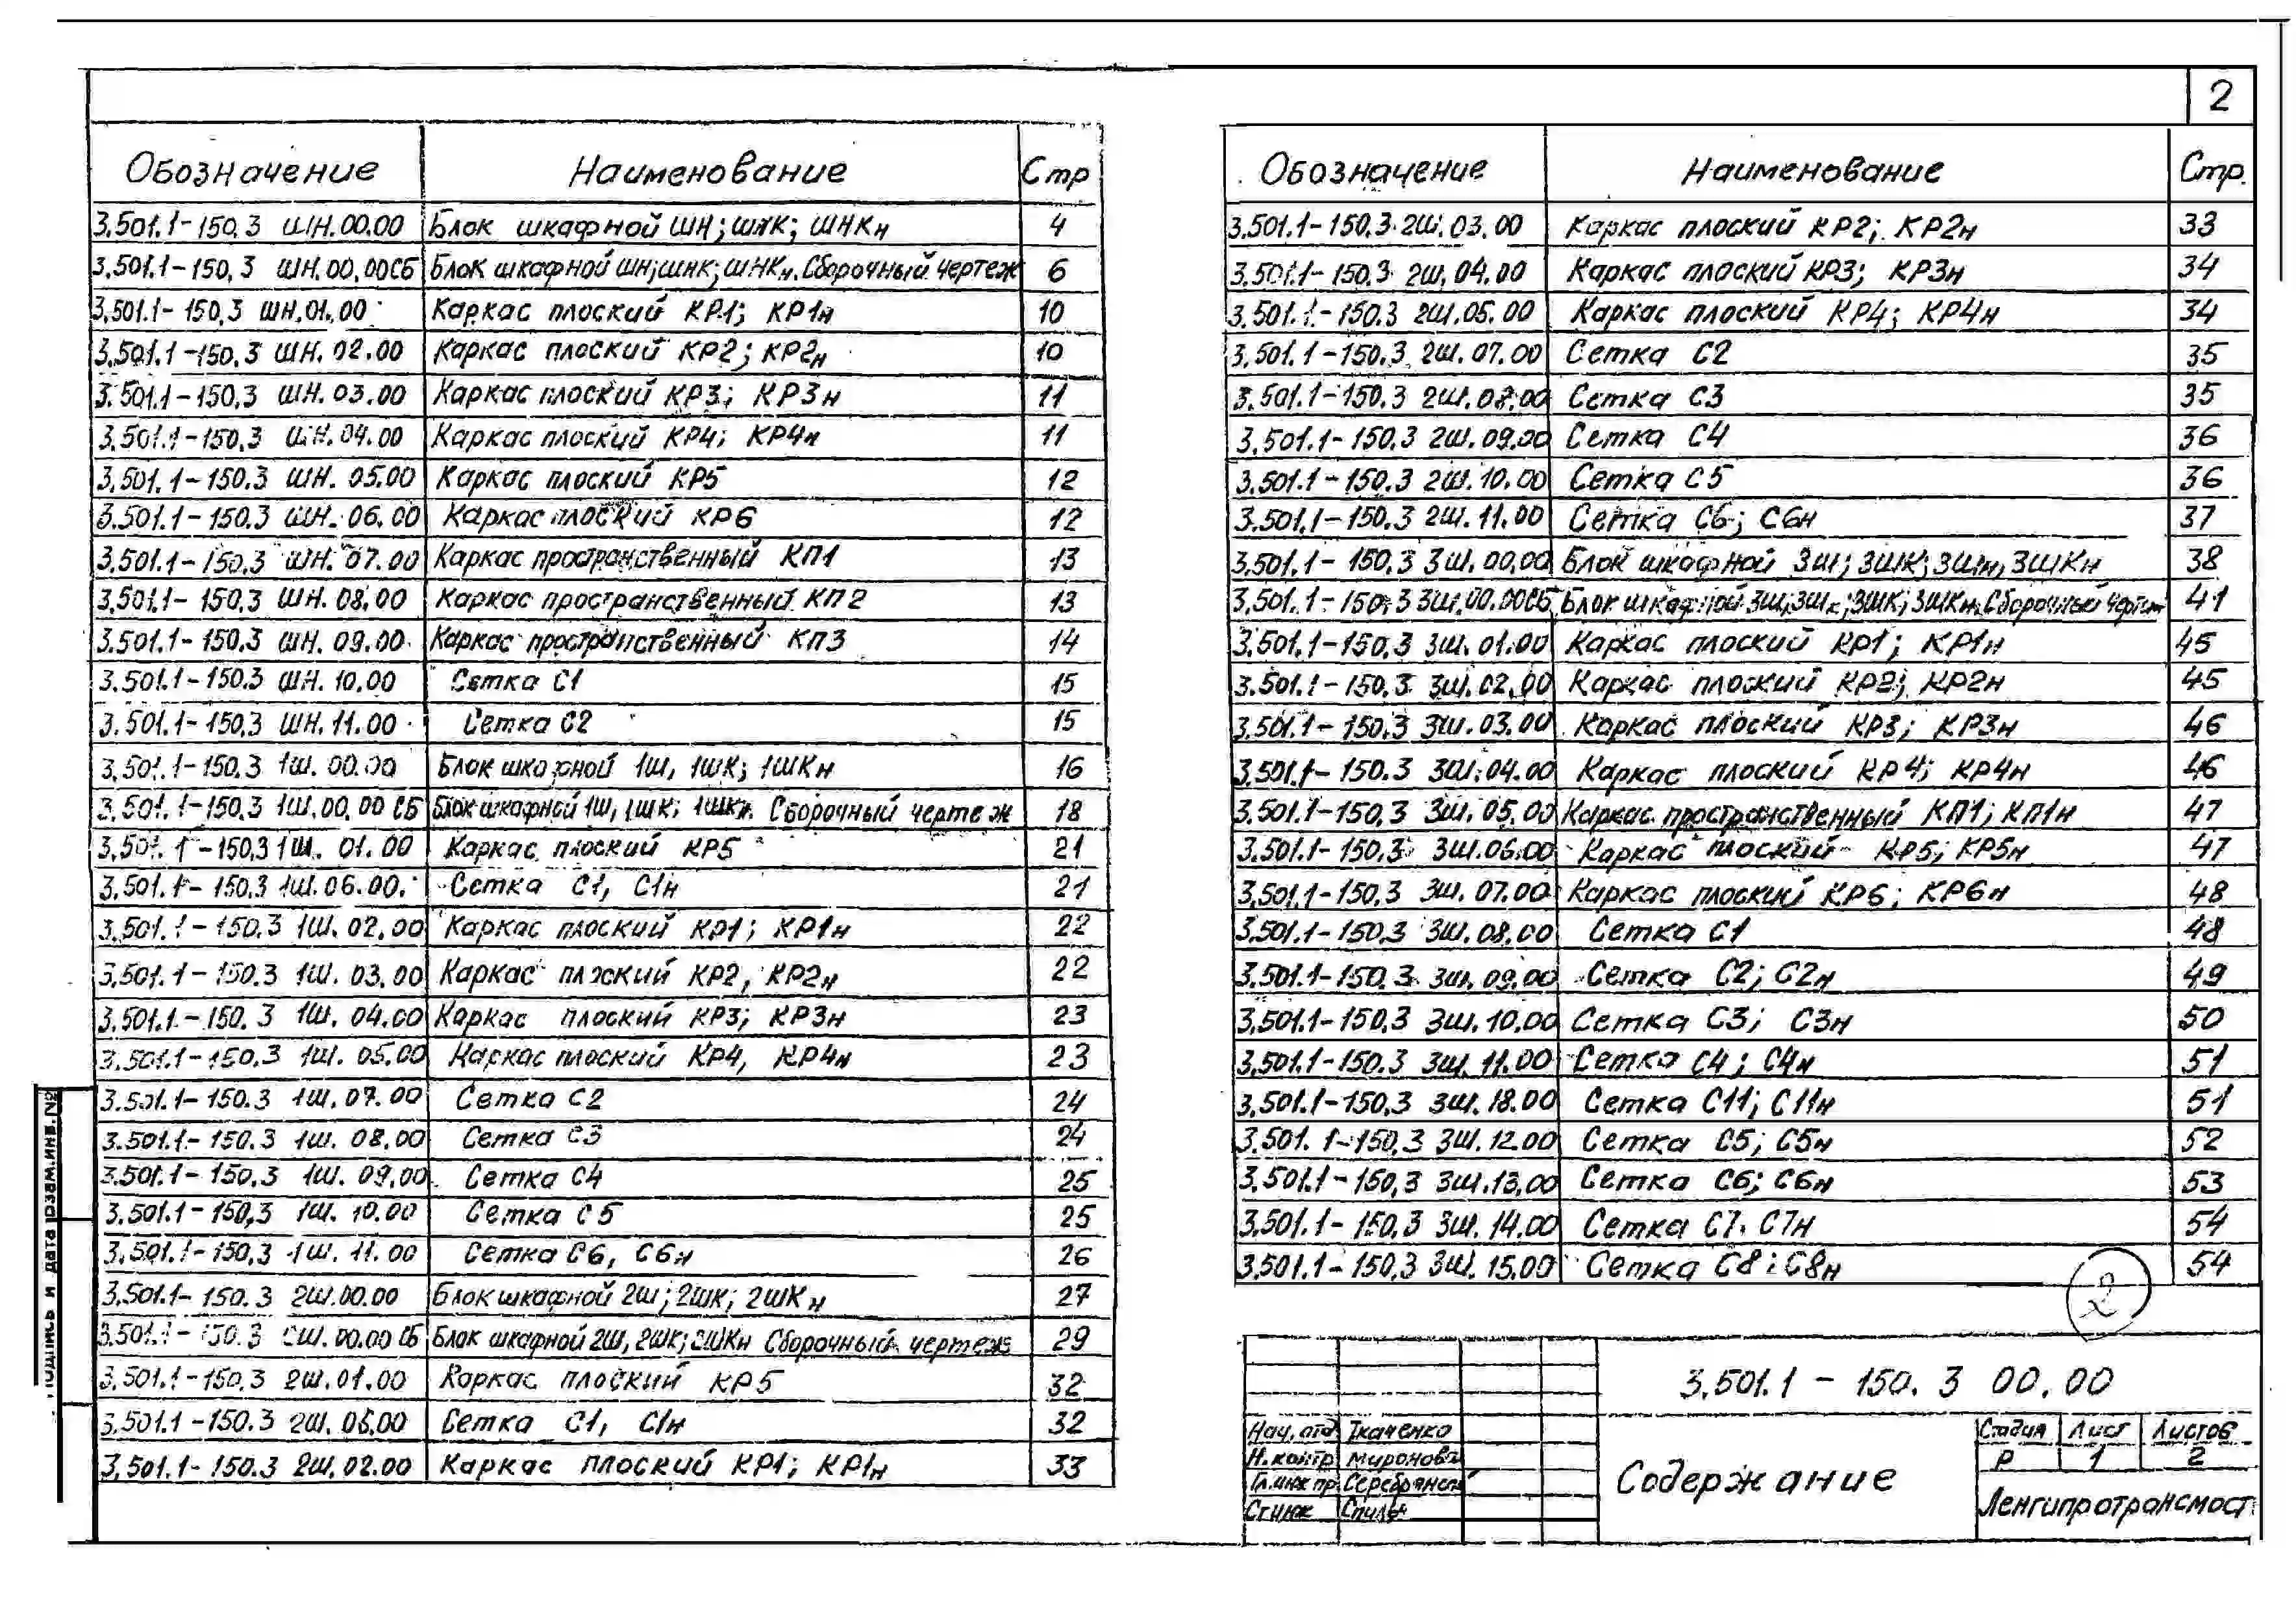 2
Обозначение Наименование Стр
3.501.1-150.3 ШН.00.00 Блок шкафной ШН; ШНК; ШНКн 4
3.501.1-150.3 ШН.00.00СБ Блок шкафной ШН; ШНК; ШНКн. Сборочный чертеж 6
3.501.1-150.3 ШН.01.00 Каркас плоский КР1; КР1н 10
3.501.1-150.3 ШН.02.00 Каркас плоский КР2; КР2н 10
3.501.1-150.3 ШН.03.00 Каркас плоский КР3; КР3н 11
3.501.1-150.3 ШН.04.00 Каркас плоский КР4; КР4н 11
3.501.1-150.3 ШН.05.00 Каркас плоский КР5 12
3.501.1-150.3 ШН.06.00 Каркас плоский КР6 12
3.501.1-150.3 ШН.07.00 Каркас пространственный КП1 13
3.501.1-150.3 ШН.08.00 Каркас пространственный КП2 13
3.501.1-150.3 ШН.09.00 Каркас пространственный КП3 14
3.501.1-150.3 ШН.10.00 Сетка С1 15
3.501.1-150.3 ШН.11.00 Сетка С2 15
3.501.1-150.3 1Ш.00.00 Блок шкафной 1Ш, 1ШК; 1ШКн 16
3.501.1-150.3 1Ш.00.00 СБ Блок шкафной 1Ш, 1ШК; 1ШКн. Сборочный чертеж 18
3.501.1-150.3 1Ш.01.00 Каркас плоский КР5 21
3.501.1-150.3 1Ш.06.00 Сетка С1, С1н 21
3.501.1-150.3 1Ш.02.00 Каркас плоский КР1; КР1н 22
3.501.1-150.3 1Ш.03.00 Каркас плоский КР2, КР2н 22
3.501.1-150.3 1Ш.04.00 Каркас плоский КР3; КР3н 23
3.501.1-150.3 1Ш.05.00 Каркас плоский КР4, КР4н 23
3.501.1-150.3 1Ш.07.00 Сетка С2 24
3.501.1-150.3 1Ш.08.00 Сетка С3 24
3.501.1-150.3 1Ш.09.00 Сетка С4 25
3.501.1-150.3 1Ш.10.00 Сетка С5 25
3.501.1-150.3 1Ш.11.00 Сетка С6, С6н 26
3.501.1-150.3 2Ш.00.00 Блок шкафной 2Ш; 2ШК; 2ШКн 27
3.501.1-150.3 2Ш.00.00 СБ Блок шкафной 2Ш, 2ШК; 2ШКн Сборочный чертеж 29
3.501.1-150.3 2Ш.01.00 Каркас плоский КР5 32
3.501.1-150.3 2Ш.06.00 Сетка С1, С1н 32
3.501.1-150.3 2Ш.02.00 Каркас плоский КР1; КР1н 33
Обозначение Наименование Стр.
3.501.1-150.3 2Ш.03.00 Каркас плоский КР2; КР2н 33
3.501.1-150.3 2Ш.04.00 Каркас плоский КР3; КР3н 34
3.501.1-150.3 2Ш.05.00 Каркас плоский КР4; КР4н 34
3.501.1-150.3 2Ш.07.00 Сетка С2 35
3.501.1-150.3 2Ш.08.00 Сетка С3 35
3.501.1-150.3 2Ш.09.00 Сетка С4 36
3.501.1-150.3 2Ш.10.00 Сетка С5 36
3.501.1-150.3 2Ш.11.00 Сетка С6; С6н 37
3.501.1-150.3 3Ш.00.00 Блок шкафной 3Ш; 3ШК; 3Шн, 3ШКн 38
3.501.1-150.3 3Ш.00.00СБ Блок шкафной 3Ш; ; 3ШК; 3ШКн. Сборочный чертеж 41
3.501.1-150.3 3Ш.01.00 Каркас плоский КР1; КР1н 45
3.501.1-150.3 3Ш.02.00 Каркас плоский КР2; КР2н 45
3.501.1-150.3 3Ш.03.00 Каркас плоский КР3; КР3н 46
3.501.1-150.3 3Ш.04.00 Каркас плоский КР4; КР4н 46
3.501.1-150.3 3Ш.05.00 Каркас пространственный КП1; КП1н 47
3.501.1-150.3 3Ш.06.00 Каркас плоский КР5; КР5н 47
3.501.1-150.3 3Ш.07.00 Каркас плоский КР6; КР6н 48
3.501.1-150.3 3Ш.08.00 Сетка С1 48
3.501.1-150.3 3Ш.09.00 Сетка С2; С2н 49
3.501.1-150.3 3Ш.10.00 Сетка С3; С3н 50
3.501.1-150.3 3Ш.11.00 Сетка С4; С4н 51
3.501.1-150.3 3Ш.18.00 Сетка С11; С11н 51
3.501.1-150.3 3Ш.12.00 Сетка С5; С5н 52
3.501.1-150.3 3Ш.13.00 Сетка С6; С6н 53
3.501.1-150.3 3Ш.14.00 Сетка С7; С7н 54
3.501.1-150.3 3Ш.15.00 Сетка С8; С8н 54
2
3.501.1-150.3 00.00
Нач. отд Ткаченко
Н.контр Миронова
Гл.инж.пр. Серебрянский
Ст инж
Содержание
Стадия Лист Листов
Р 1 2
Ленгипротрансмост
подпись и дата Взам.инв.№